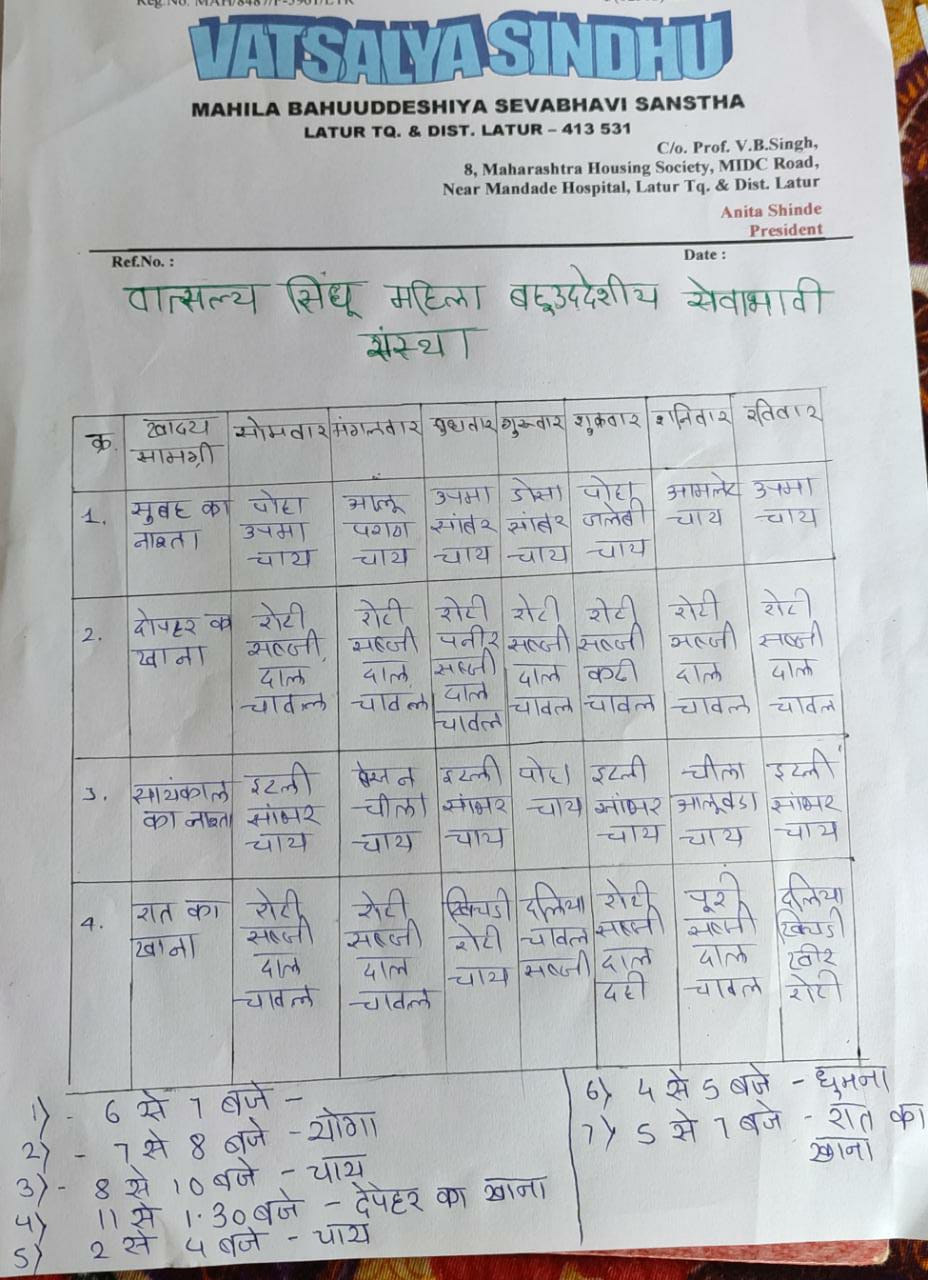 Reg.No. MAH/8487/F-5961/LTR
VATSALYA SINDHU
MAHILA BAHUUDDESHIYA SEVABHAVI SANSTHA
LATUR TQ. & DIST. LATUR – 413 531
C/o. Prof. V.B.Singh,
8, Maharashtra Housing Society, MIDC Road,
Near Mandade Hospital, Latur Tq. & Dist. Latur
Anita Shinde
President
Ref.No. : Date :
वात्सल्य सिंधू महिला बहूउददेशीय सेवाभावी
संस्था
क्र. खादय सामग्री सोमवार मंगलवार बुधवार गुरूवार शुक्रवार शनिवार रविवार
1. सुबह का पोहा आलू उपमा डोसा पोहा आमलेट उपमा
नाश्ता उपमा पराठा सांबर सांबर जलेबी चाय चाय
चाय चाय चाय चाय चाय
2. दोपहर का रोटी रोटी रोटी रोटी रोटी रोटी रोटी
खाना सब्जी सब्जी पनीर सब्जी सब्जी सब्जी सब्जी
दाल दाल सब्जी दाल कढी दाल दाल
चावल चावल दाल चावल चावल चावल चावल
चावल
3. सायंकाल इटली बेसन इटली पोहा इटली चीला इटली
का नाश्ता सांभर चीला सांभर चाय सांभर आलूवडा सांभर
चाय चाय चाय चाय चाय चाय
4. रात का रोटी रोटी खिचडी दलिया रोटी पूरी दलिया
खाना सब्जी सब्जी रोटी चावल सब्जी सब्जी खिचडी
दाल दाल चाय सब्जी दाल दाल खीर
चावल चावल दही चावल रोटी
1) - 6 से 7 बजे -
2) - 7 से 8 बजे - योगा
3) - 8 से 10 बजे - चाय
4) 11 से 1.30 बजे - देपेहर का खाना
5) 2 से 4 बजे - चाय
6) 4 से 5 बजे - घुमना
7) 5 से 7 बजे - रात का
खाना